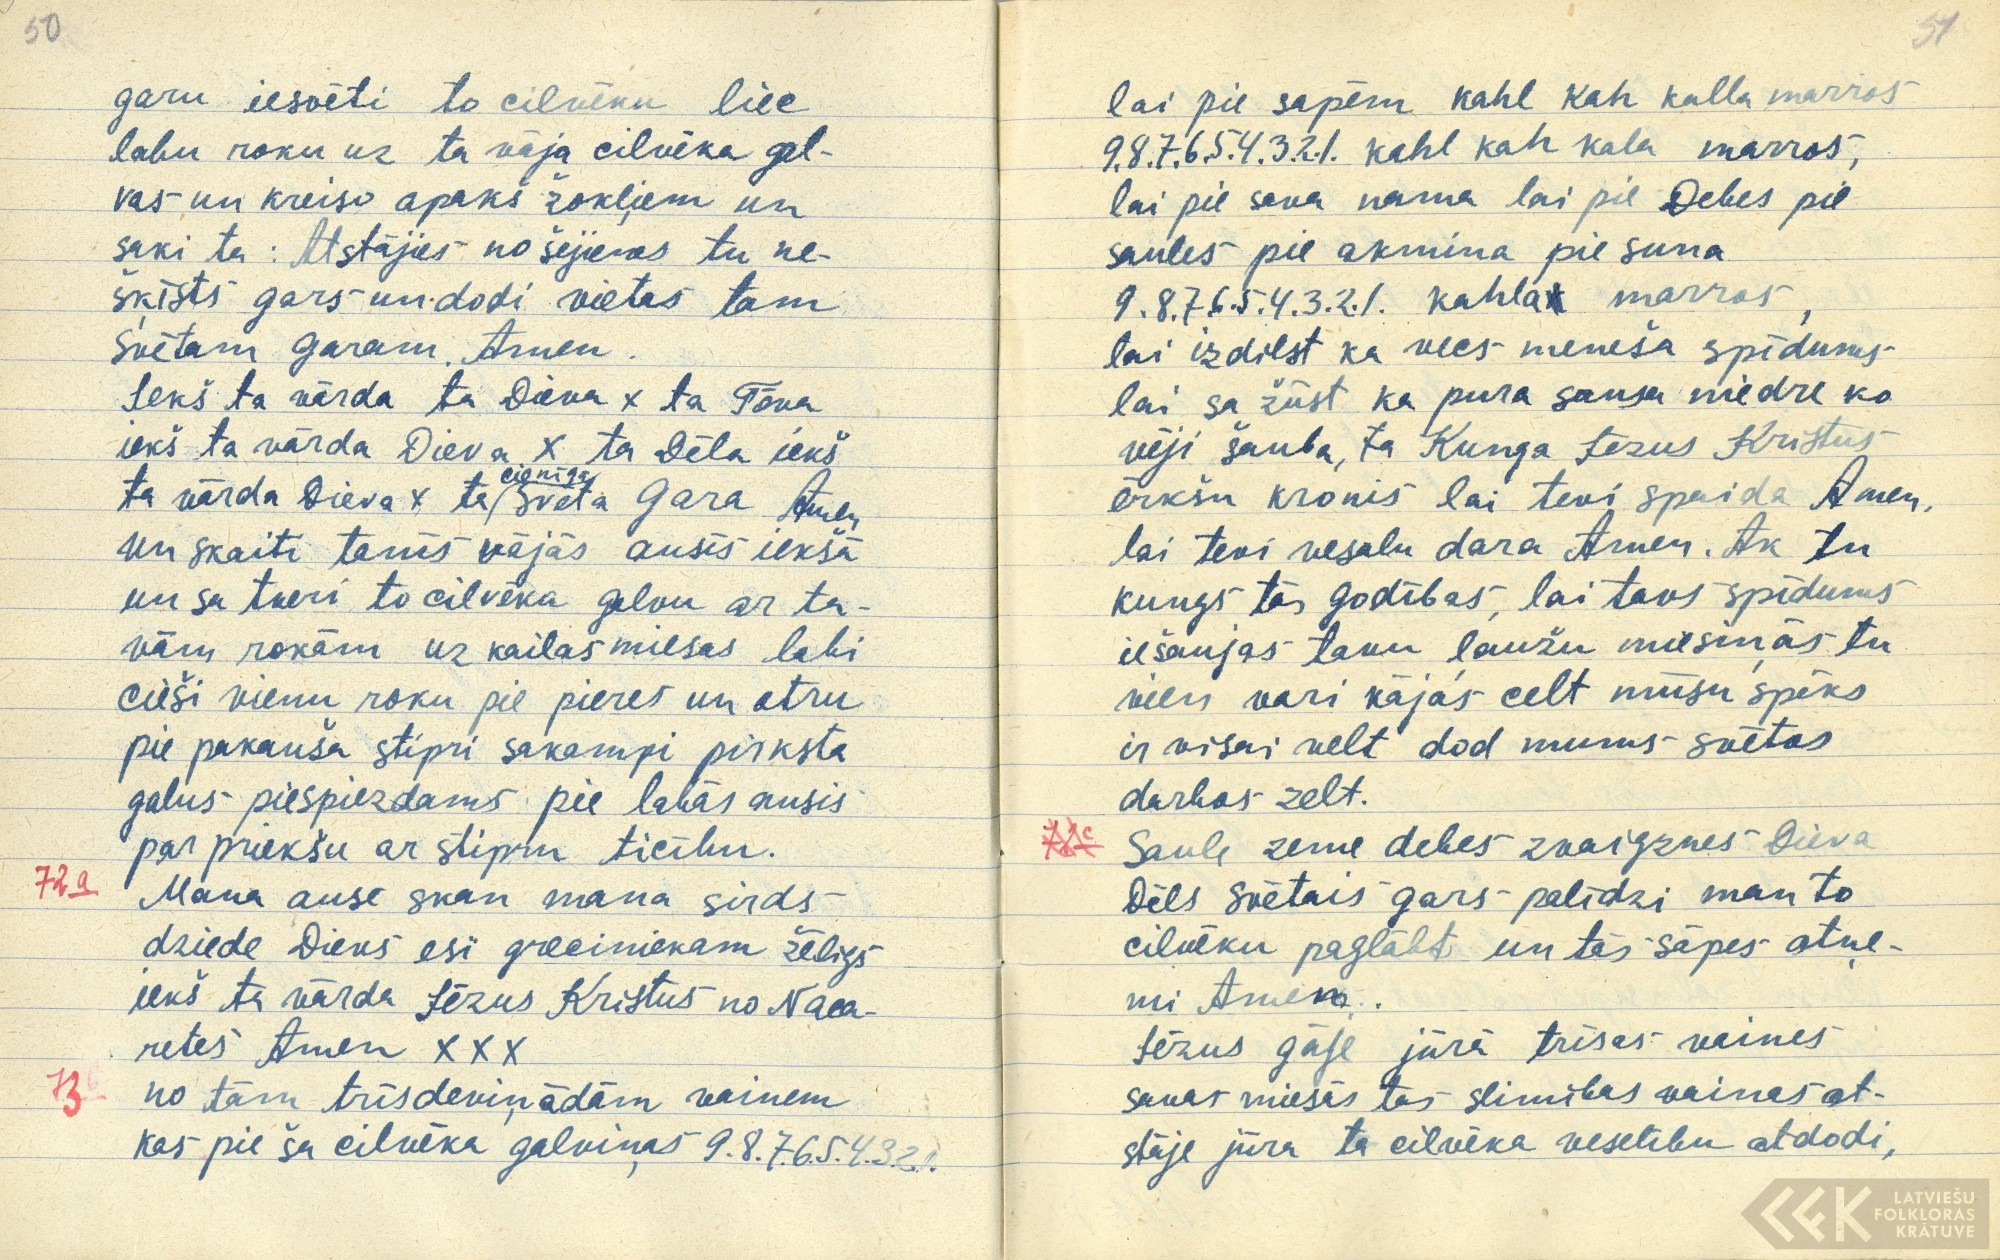 50
garu iesvēti to cilvēku liec
labu roku uz ta vāja cilvēka gal-
vas un kreiso apakš žokļiem un
saki ta: Atstājies no šejienes tu ne-
šķīsts gars un dodi vietas tam
svētam garam. Amen.
Iekš ta vārda ta Dieva x ta Tēva
iekš ta vārda Dieva x ta Dēla iekš
cienīga
ta vārda Dieva x ta Svēta Gara Amen
un skaiti tanīs vājās ausīs iekšā
un sa tveri to cilvēka galvu ar ta-
vām rokām uz kailas miesas labi
cieši vienu roku pie pieres un otru
pie pakauša stipri sakampi pirksta
galus piespiezdams pie labās ausis
par priekšu ar stipru ticību.
72a
Mana ause skan mana sirds
dziede Dievs esi greciniekam žēligs
iekš ta vārda Jēzus Kristus no Naca-
retes Amen x x x
73
no tām trīsdeviņādām vainem
kas pie ša cilvēka galviņas 9.8.7.6.5.4.3.2.1.
51
lai pie sapēm kahl kah kalla marros
9.8.7.6.5.4.3.2.1. kahl kah kala marros,
lai pie sava nama lai pie Debes pie
saules pie akmina pie suna
9.8.7.6.5.4.3.2.1. kahla marros,
lai izdilst ka vecs meneša spīdums
lai sa žūst ka pura sausa niedre ko
vēji šauba, ta Kunga Jezus Kristus
ērkšu kronis lai tevi spaida Amen,
lai tevi veselu dara Amen. Ak tu
kungs tās godības, lai tavs spīdums
iešaujas tavu laužu miesiņās tu
vien vari kājās celt mūsu spēks
ir visai velt dod mums svētas
darbos zelt.
72c
Saule zeme debes zvaigznes Dieva
Dēls svētais gars palīdzi man to
cilvēku paglābt un tās sāpes atņe-
mi Amen.
Jēzus gāje jūrā trīsas vaines
savas miesās tas slimības vainas at-
stāje jūra ta cilvēka veselibu atdodi,
LATVIEŠU
FOLKLORAS
KRĀTUVE